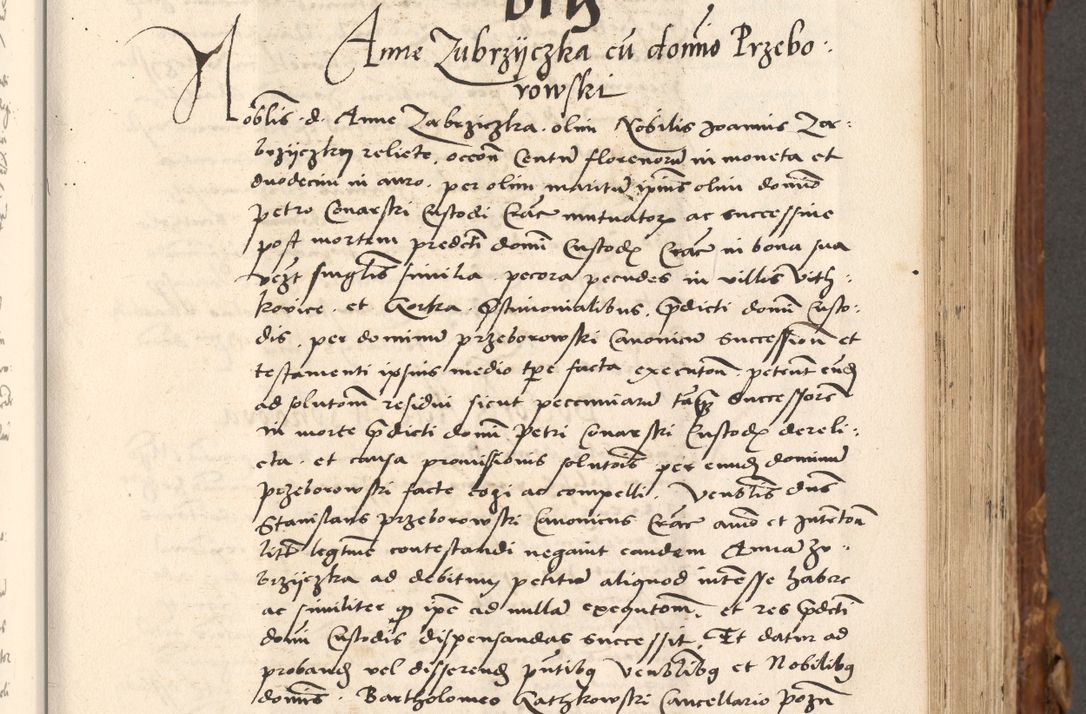 Anne Zubrzÿczka cū domīo Przebo-
rowski
Nobīlis d. Anne Zabrziczka olim Nobilis Joannis Zer-
brzÿczkÿ reliete, occōn Centū florenorū in moneta et
duodecim in auro, per olim maritū ip̄ius olim domīo
Petro Conarski Custodi Crāc mutuator ac successiue
post mortem predcti domī Custodꝫ Crāc in bona sua
singlīs similia pecora pecudes in villis Vith-
kovice et Gorka predicti domī Custo-
dis, per dominū przeborowski Canonicū successionē et
testamenti ipsius medio tp̄e facta executorē petent eūdꝫ
ad solutionē residui sicut pecuniarū successorē
in morte predicti domī Petri Conarski Custodꝫ dereli-
cta et causa promissionis solutōis per eundꝫ dominū
przeborowski facte cogi ac compelli. Venbīlis dn̄s
Stanislaus przeborowski Canonicus Crāc animo et Intentōn
litē legtīme contestandi negauit eandem Annā Zu-
brzÿczka ad debitum petitū aliquod interesse habere
ac similiter ꝙ ip̄e ad nullā exequutonē, et res predcti
domī Custodis dispensandas successit. Et datur ad
probandꝫ vel disserendꝫ pn̄tibꝫ Venbīlibꝫ et Nobilibꝫ
domīs Bartholomeo Gathkowski Cancellario pozn̄